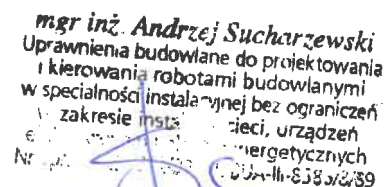 mgr inż. Andrzej Sucharzewski
Uprawnienia budowlane do projektowania
i kierowania robotami budowlanymi
w specjalności instalacyjnej bez ograniczeń
zakresie sieci, urządzeń
Nr